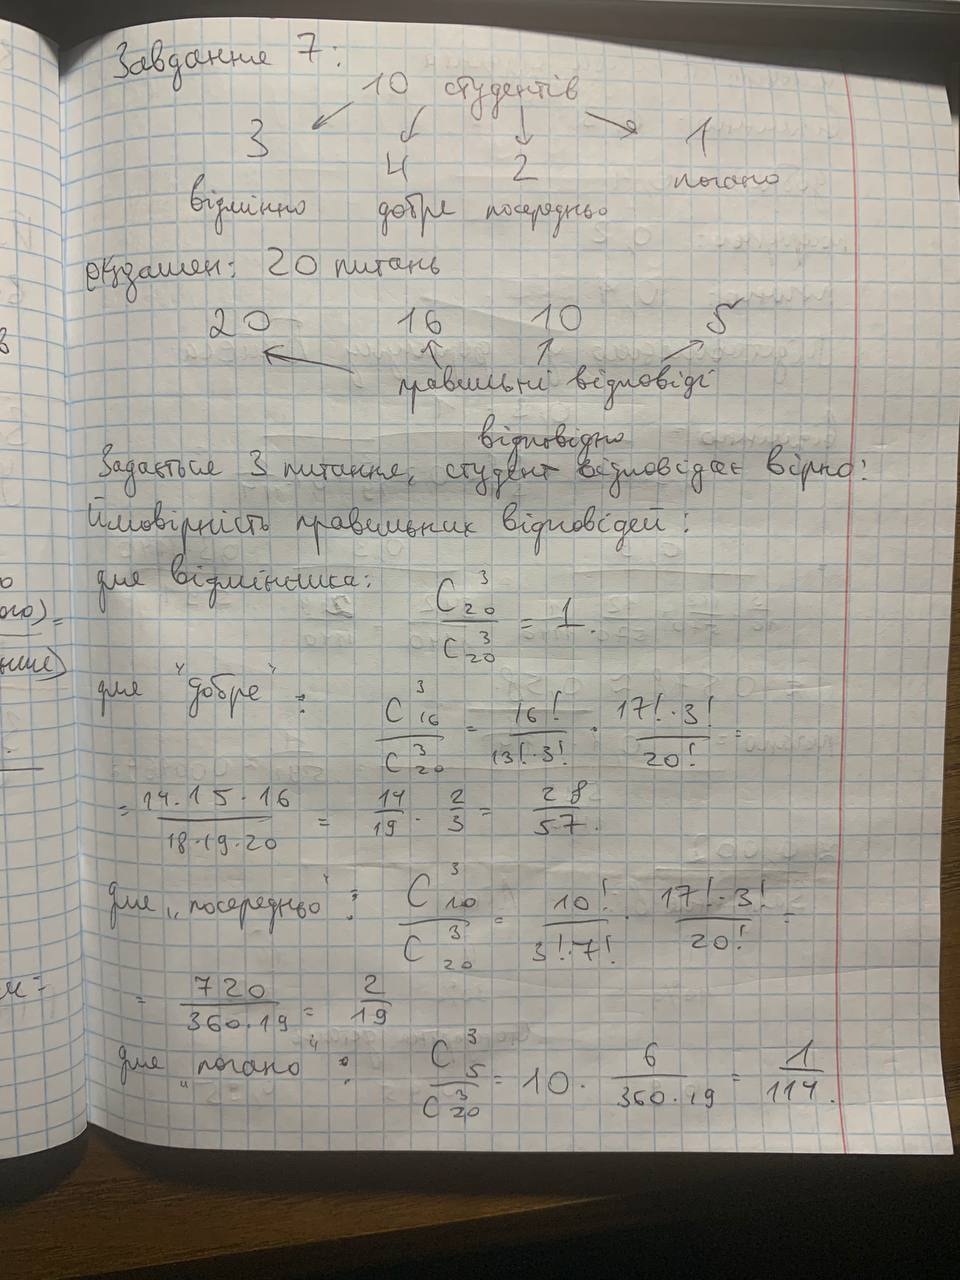 Завдання 7:
10 студентів
3 4 2 1
відмінно добре посередньо погано
екзамен: 20 питань
20 16 10 5
правильні відповіді
відповідно
Задається 3 питання, студент відповідає вірно:
Ймовірність правильних відповідей:
для відмінника: C³₂₀ / C³₂₀ = 1.
для "добре": C³₁₆ / C³₂₀ = 16! / 13!·3! · 17!·3! / 20! =
= 14·15·16 / 18·19·20 = 14/19 · 2/3 = 28/57.
для „посередньо": C³₁₀ / C³₂₀ = 10! / 3!·7! · 17!·3! / 20! =
= 720 / 360·19 = 2/19
для „погано": C³₅ / C³₂₀ = 10 · 6 / 360·19 = 1/114.